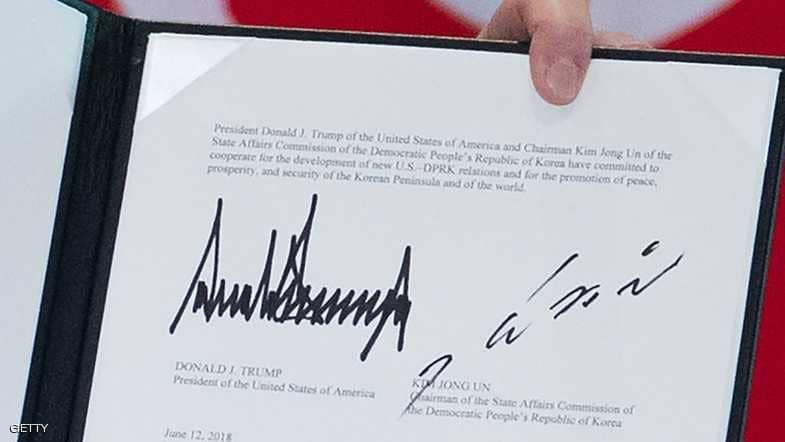 President Donald J. Trump of the United States of America and Chairman Kim Jong Un of the
State Affairs Commission of the Democratic People's Republic of Korea have committed to
cooperate for the development of new U.S.–DPRK relations and for the promotion of peace,
prosperity, and security of the Korean Peninsula and of the world.
DONALD J. TRUMP
President of the United States of America
KIM JONG UN
Chairman of the State Affairs Commission of
the Democratic People's Republic of Korea
June 12, 2018
GETTY